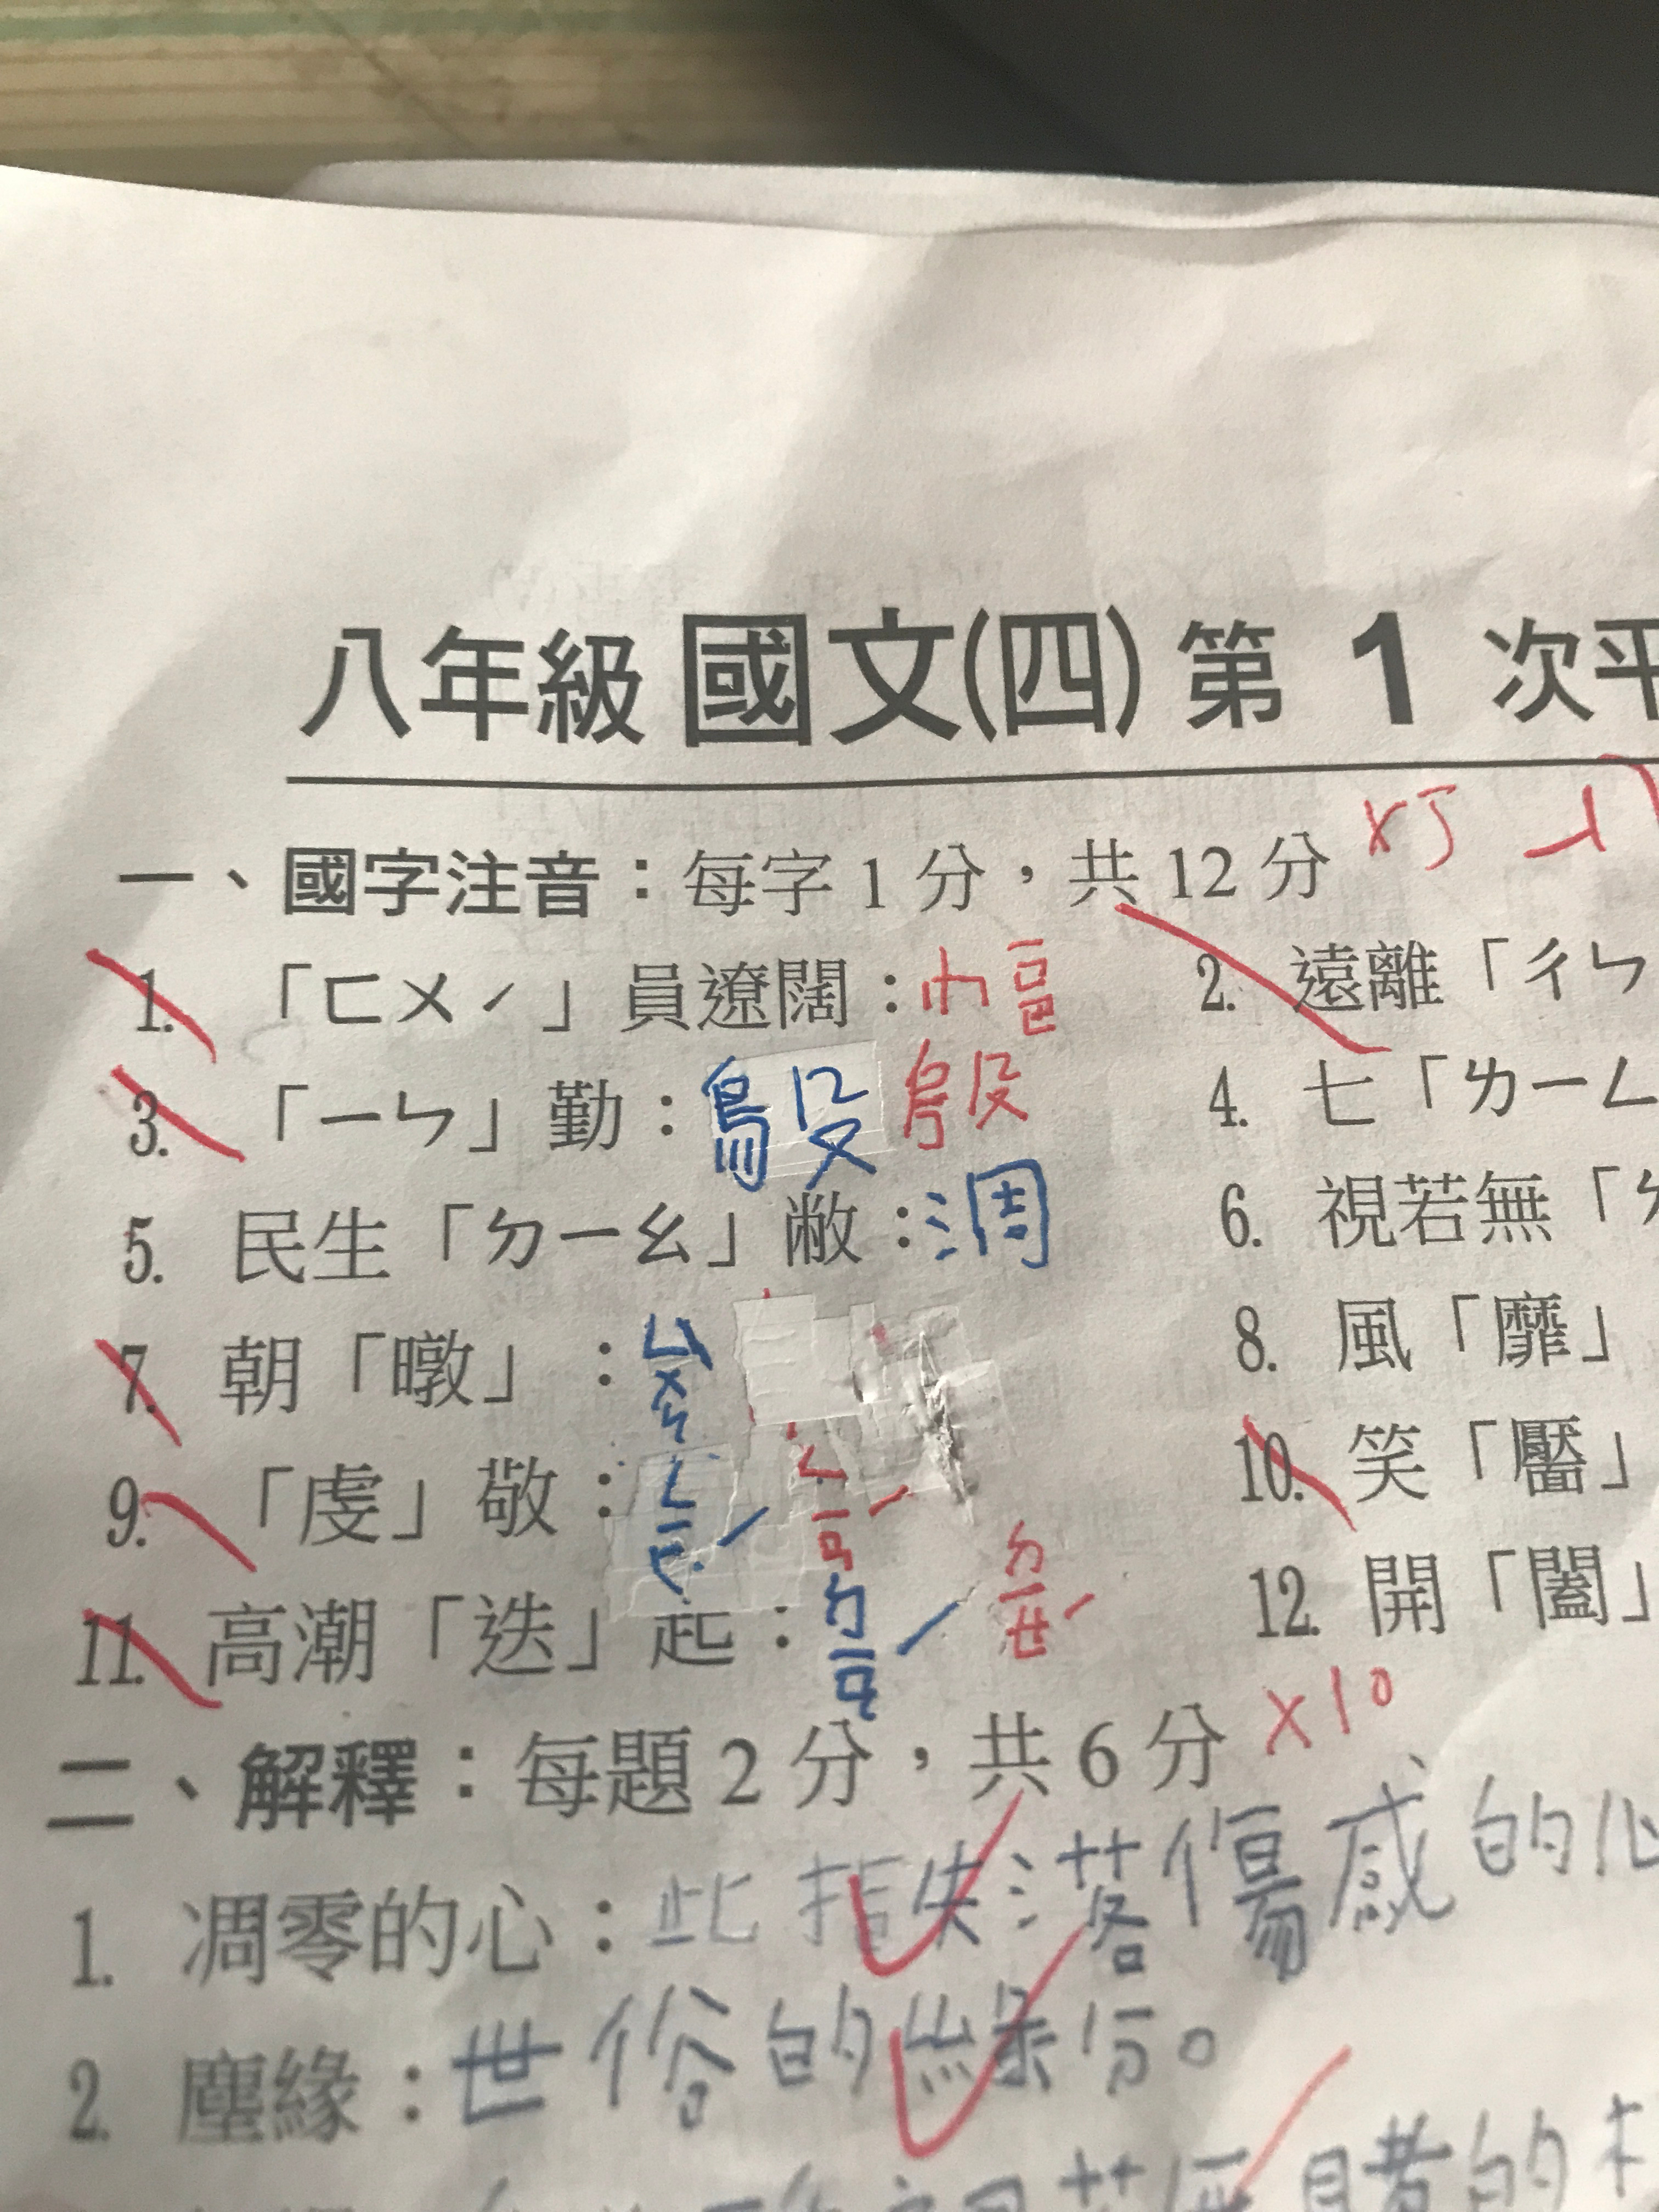 八年級 國文(四) 第 1 次平
一、國字注音：每字 1 分，共 12 分 ×5
1. 「ㄈㄨˊ」員遼闊：幅 2. 遠離「ㄔㄣ
3. 「ㄧㄣ」勤： 殷 4. 七「ㄌㄧㄥ
5. 民生「ㄉㄧㄠ」敝： 6. 視若無「ㄉ
7. 朝「暾」： 8. 風「靡」
9. 「虔」敬： 10. 笑「靨」
11. 高潮「迭」起： ㄉㄧㄝˊ 12. 開「闔」
二、解釋：每題 2 分，共 6 分 ×10
1. 凋零的心：此指失落傷感的心
2. 塵緣：世俗的緣份。
睹的